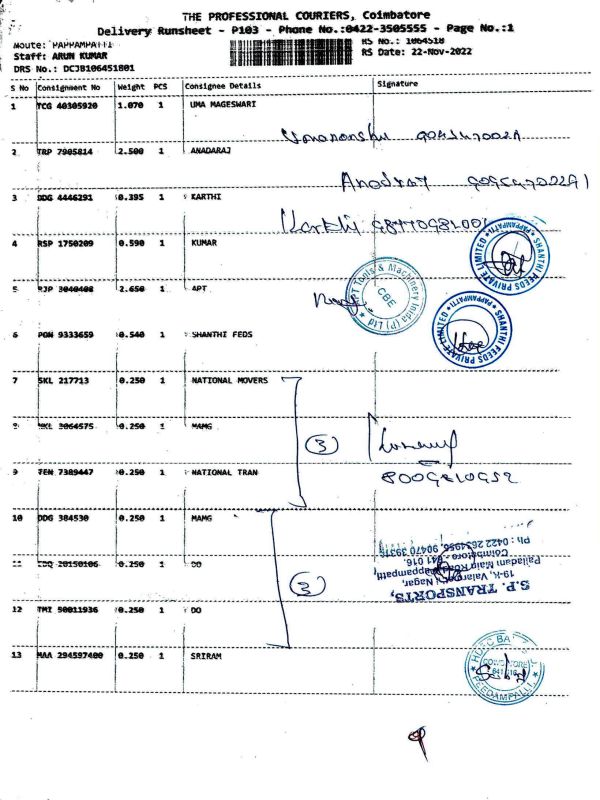 THE PROFESSIONAL COURIERS, Coimbatore
Delivery Runsheet - P103 - Phone No.:0422-3505555 - Page No.:1
Route: PAPPAMPATTI
RS No.: 1064518
Staff: ARUN KUMAR
RS Date: 22-Nov-2022
DRS No.: DCJB106451801
S No Consignment No Weight PCS Consignee Details Signature
1 TCG 40305920 1.070 1 UMA MAGESWARI
2 TRP 7905814 2.500 1 ANADARAJ
Anadraj
3 DDG 4446291 0.395 1 KARTHI
Karthi
4 RSP 1750209 0.590 1 KUMAR
SHANTHI FEEDS PRIVATE LIMITED
PAPPAMPATTI
5 RJP 3040408 2.650 1 APT
APT Tools & Machinery India (P) Ltd
CBE
6 PON 9333659 0.540 1 SHANTHI FEDS
SHANTHI FEEDS PRIVATE LIMITED
PAPPAMPATTI
7 SKL 217713 0.250 1 NATIONAL MOVERS
8 3064575 0.250 1 MAMG
3
9 TEN 7389447 0.250 1 NATIONAL TRAN
10 DDG 384530 0.250 1 MAMG
11 20150106 0.250 1 DO
3
12 TMI 50011936 0.250 1 DO
S.P. TRANSPORTS,
Nagar,
Palladam Main Road, Pappampatti,
Coimbatore - 641 016.
Ph : 0422 90470
13 MAA 294597400 0.250 1 SRIRAM
HDFC BA
COIMBATORE
641 016
PEEDAMPALLI